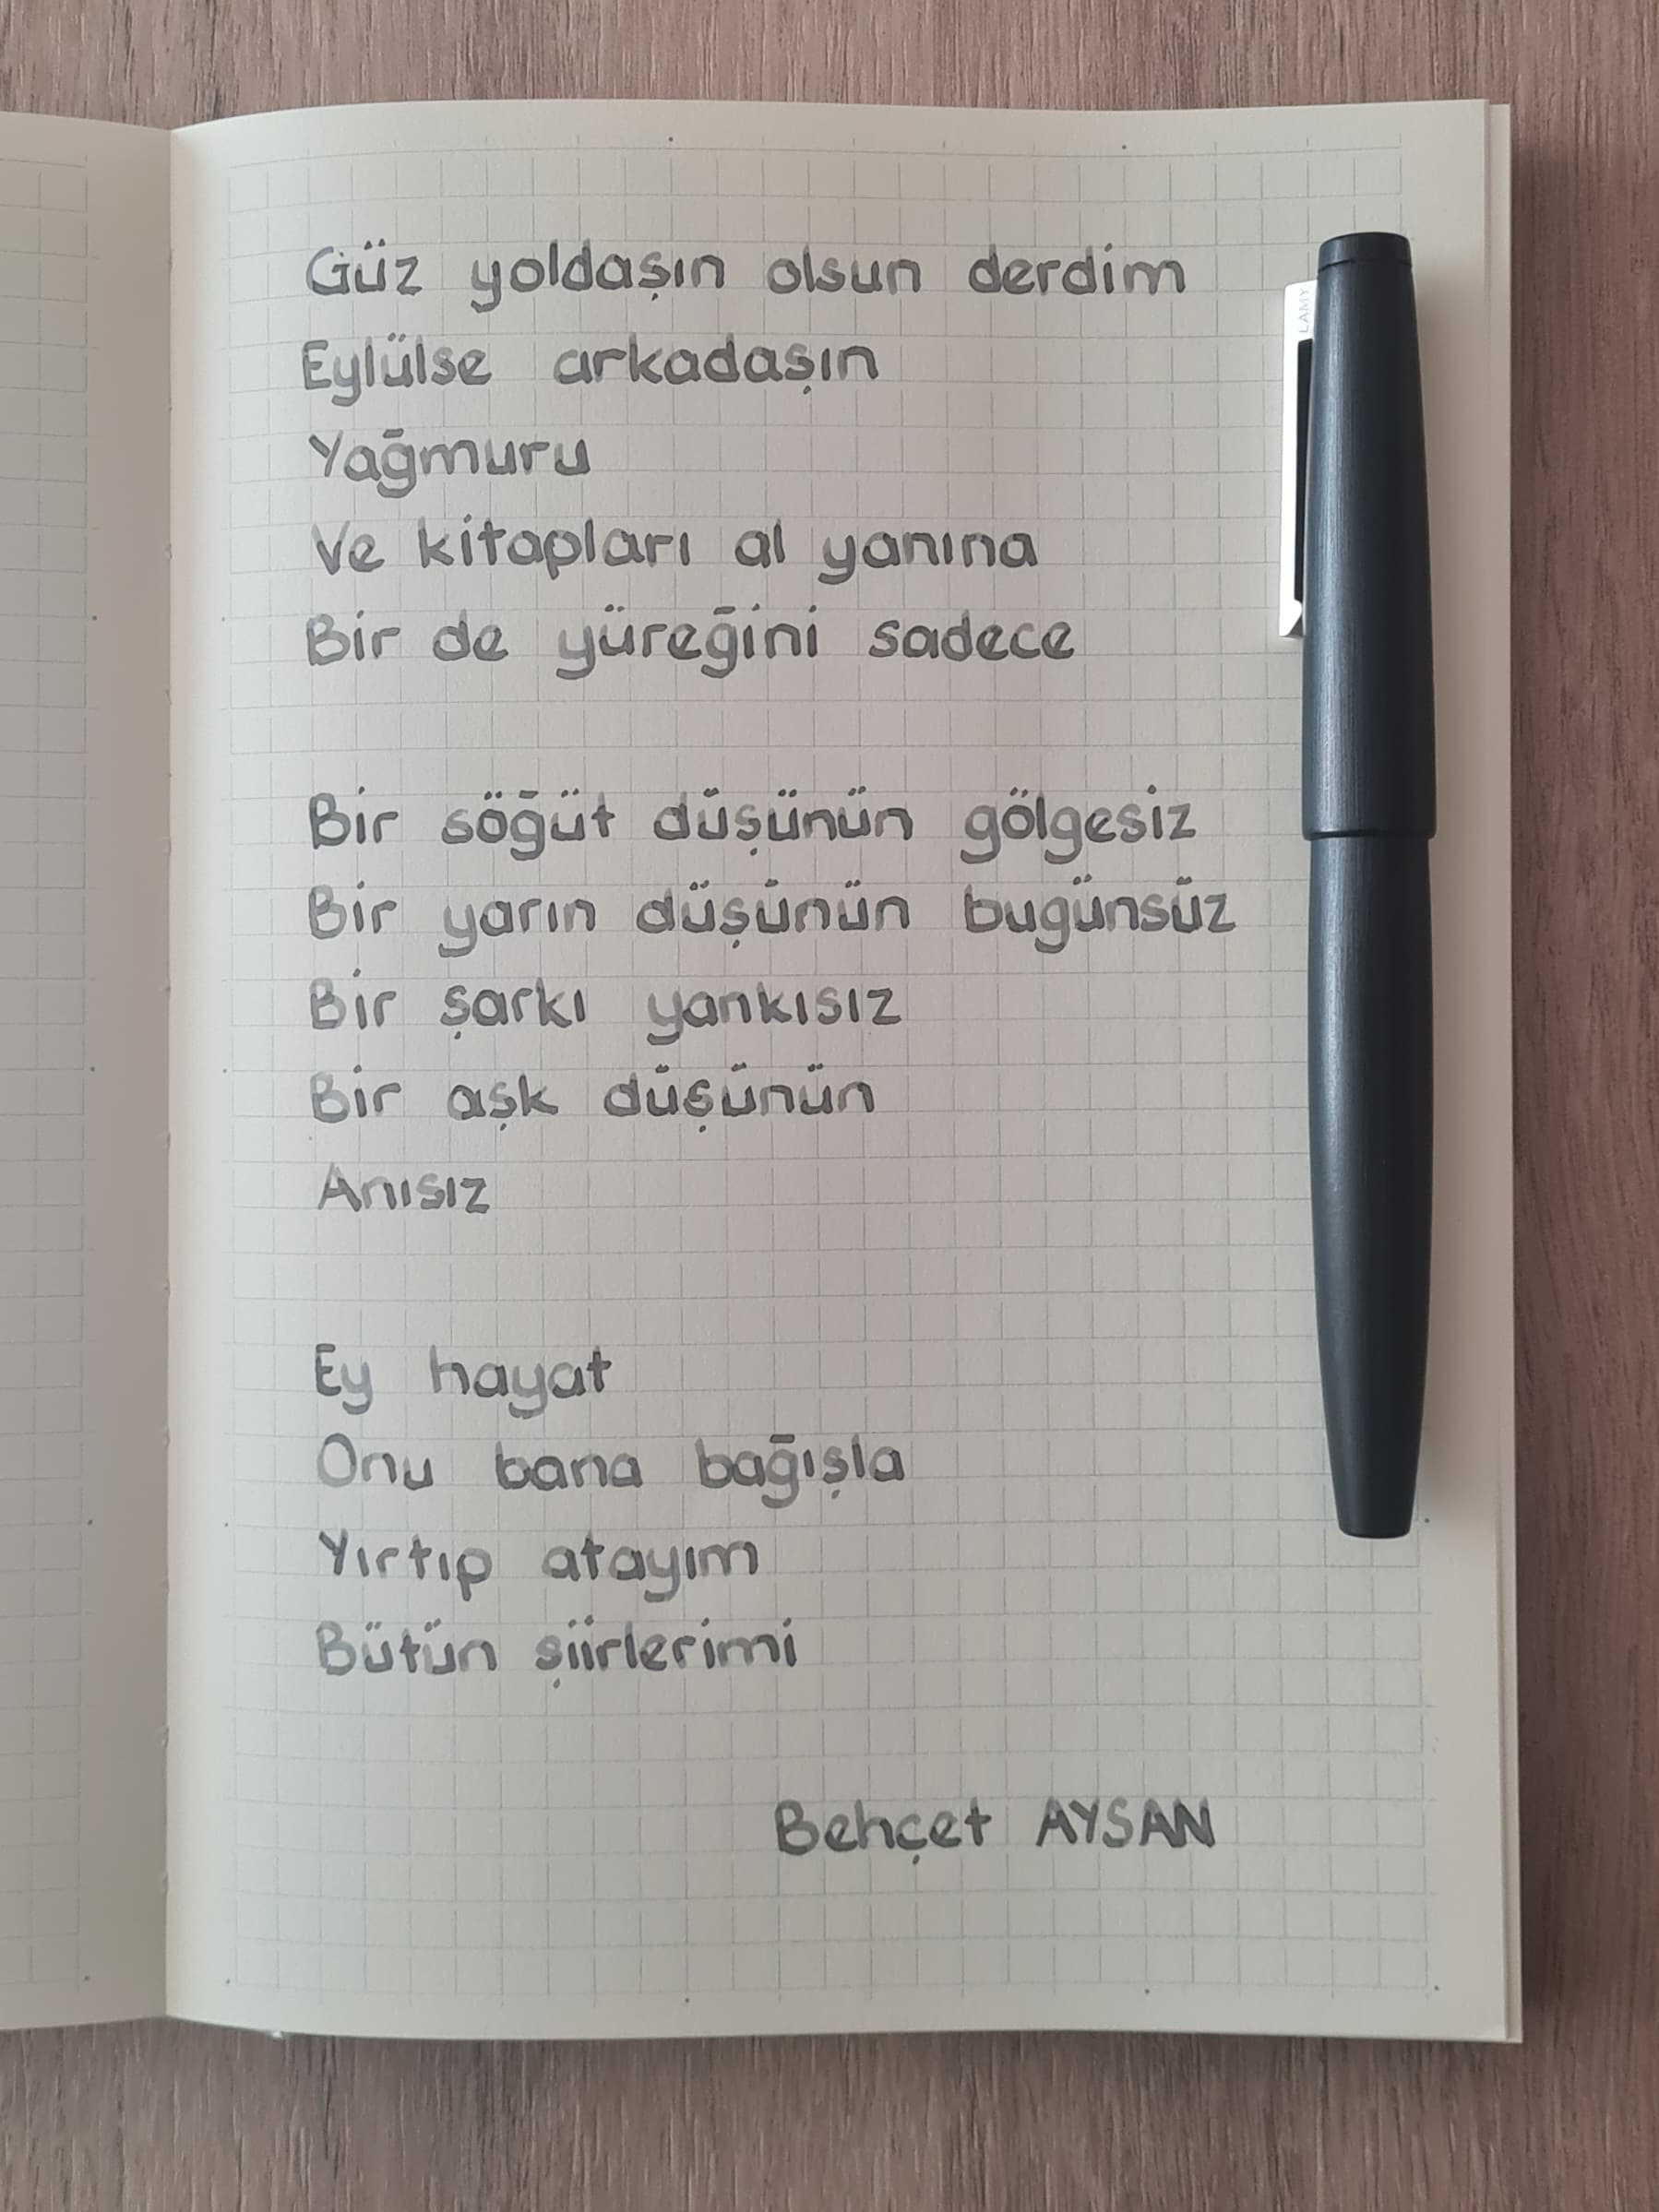 Güz yoldaşın olsun derdim
Eylülse arkadaşın
Yağmuru
Ve kitapları al yanına
Bir de yüreğini sadece
Bir söğüt düşünün gölgesiz
Bir yarın düşünün bugünsüz
Bir şarkı yankısız
Bir aşk düşünün
Anısız
Ey hayat
Onu bana bağışla
Yırtıp atayım
Bütün şiirlerimi
Behçet AYSAN
LAMY